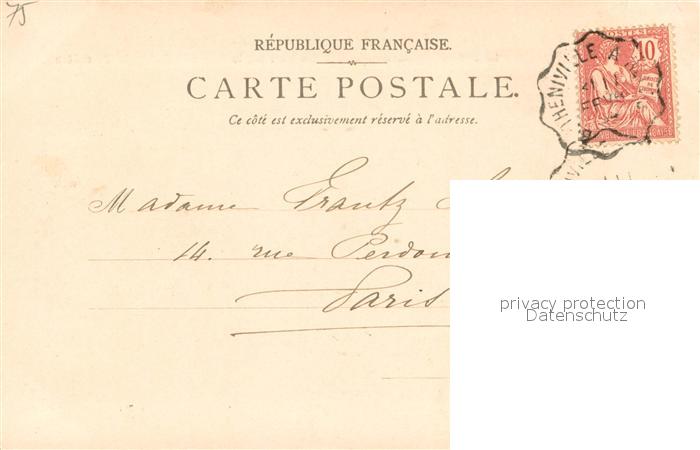 75
RÉPUBLIQUE FRANÇAISE.
CARTE POSTALE.
Ce côté est exclusivement réservé à l'adresse.
POSTES
10
HENIVILLE A
Madame Frantz
14. rue
Paris
privacy protection
Datenschutz